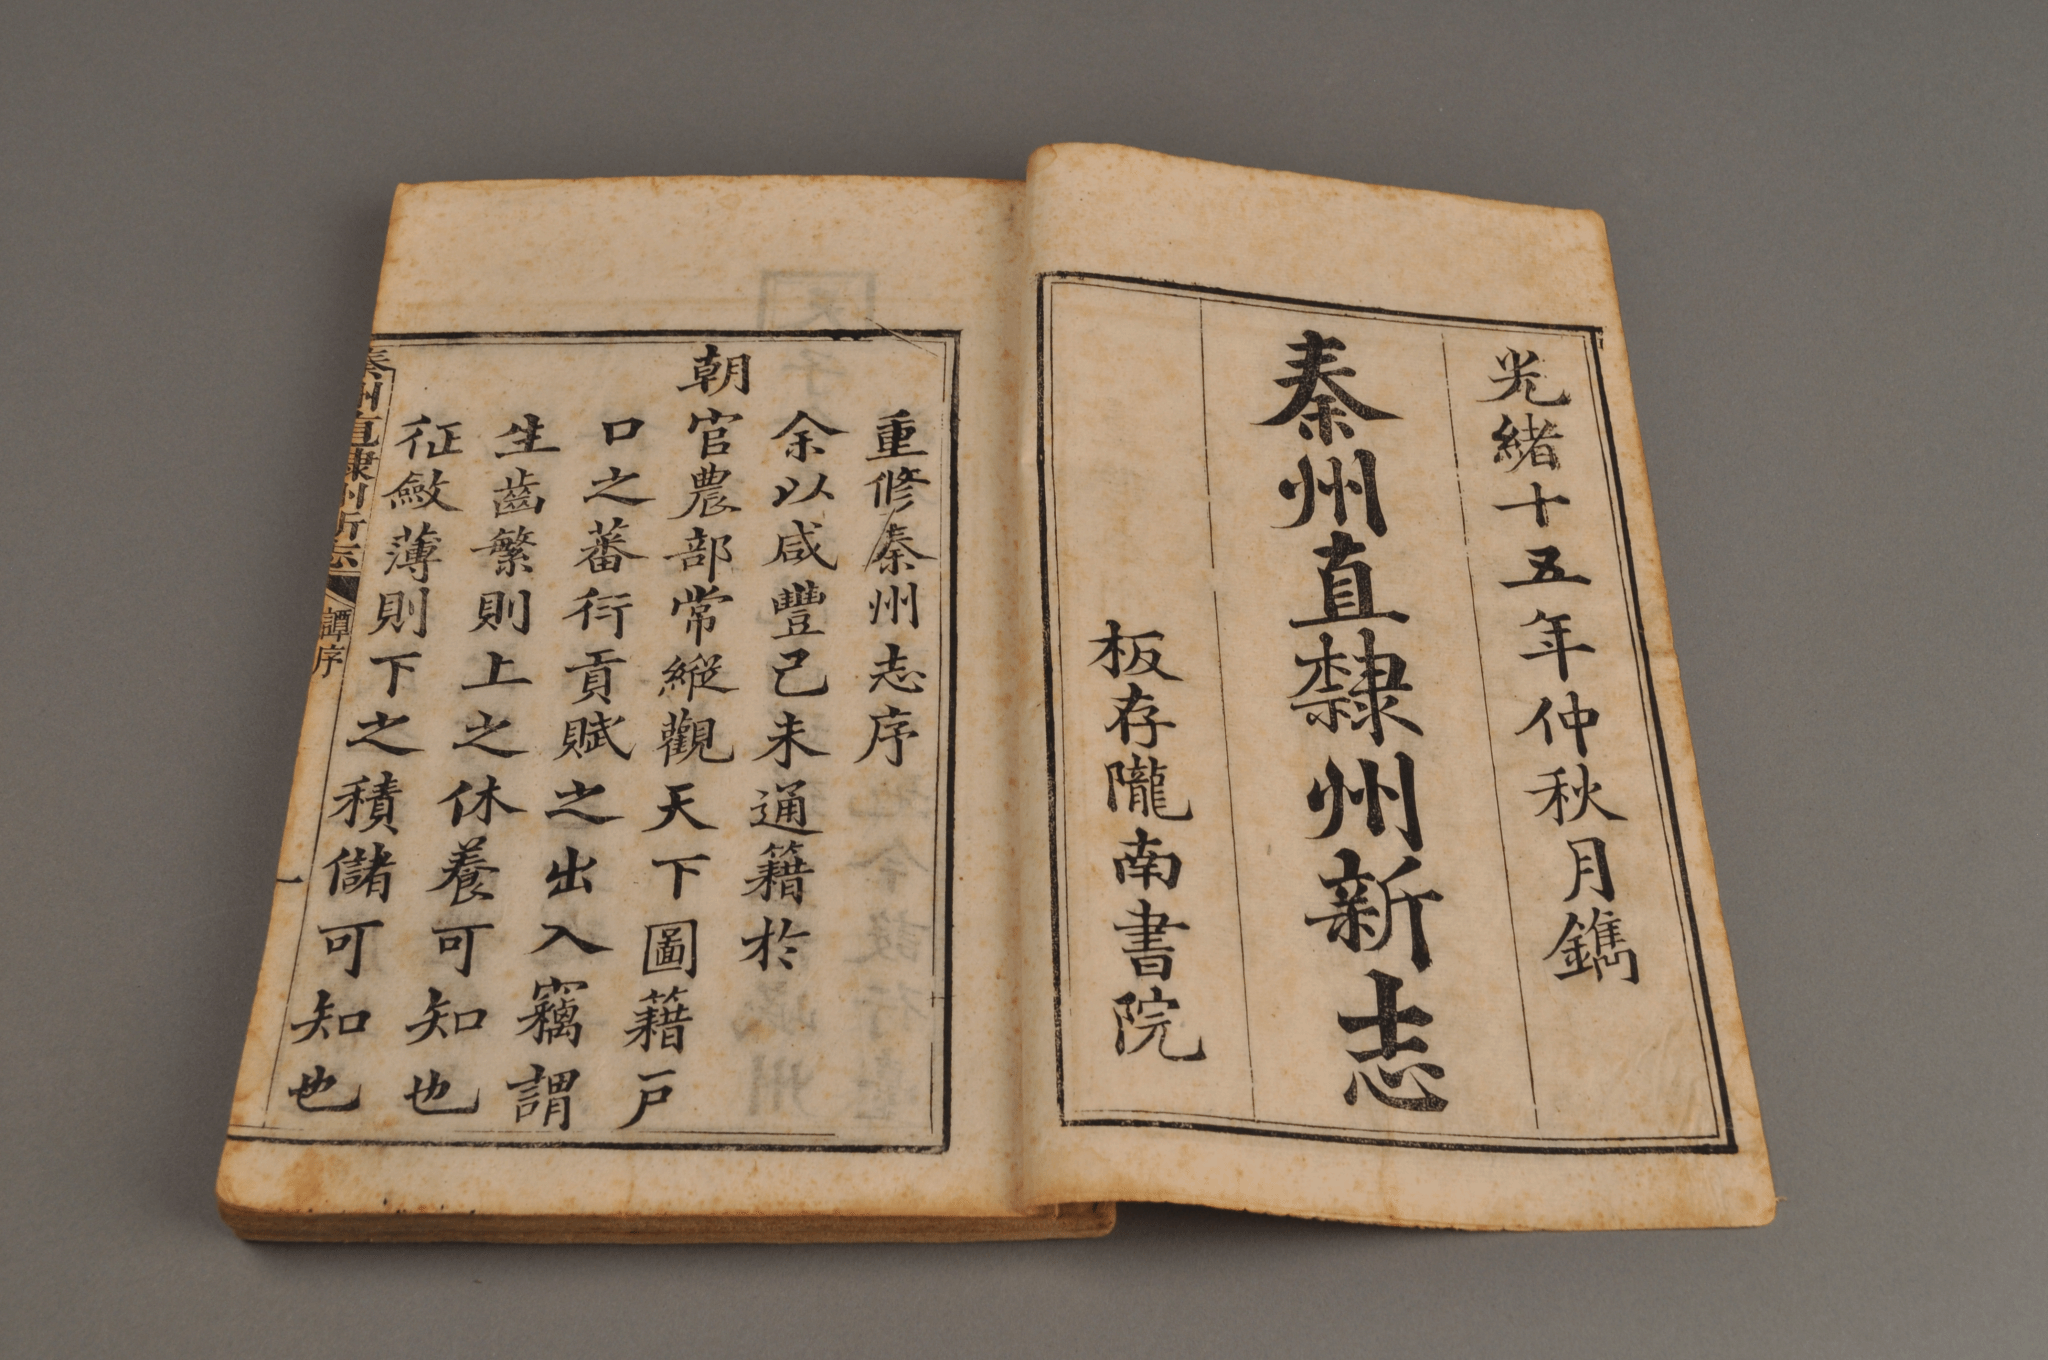 光緒十五年仲秋月鐫
秦州直隸州新志
板存隴南書院
重修秦州志序
余以咸豐己未通籍於
朝官農部常縱觀天下圖籍戶
口之蕃衍貢賦之出入竊謂
生齒繁則上之休養可知也
征斂薄則下之積儲可知也
秦州直隸州新志
譚序
一